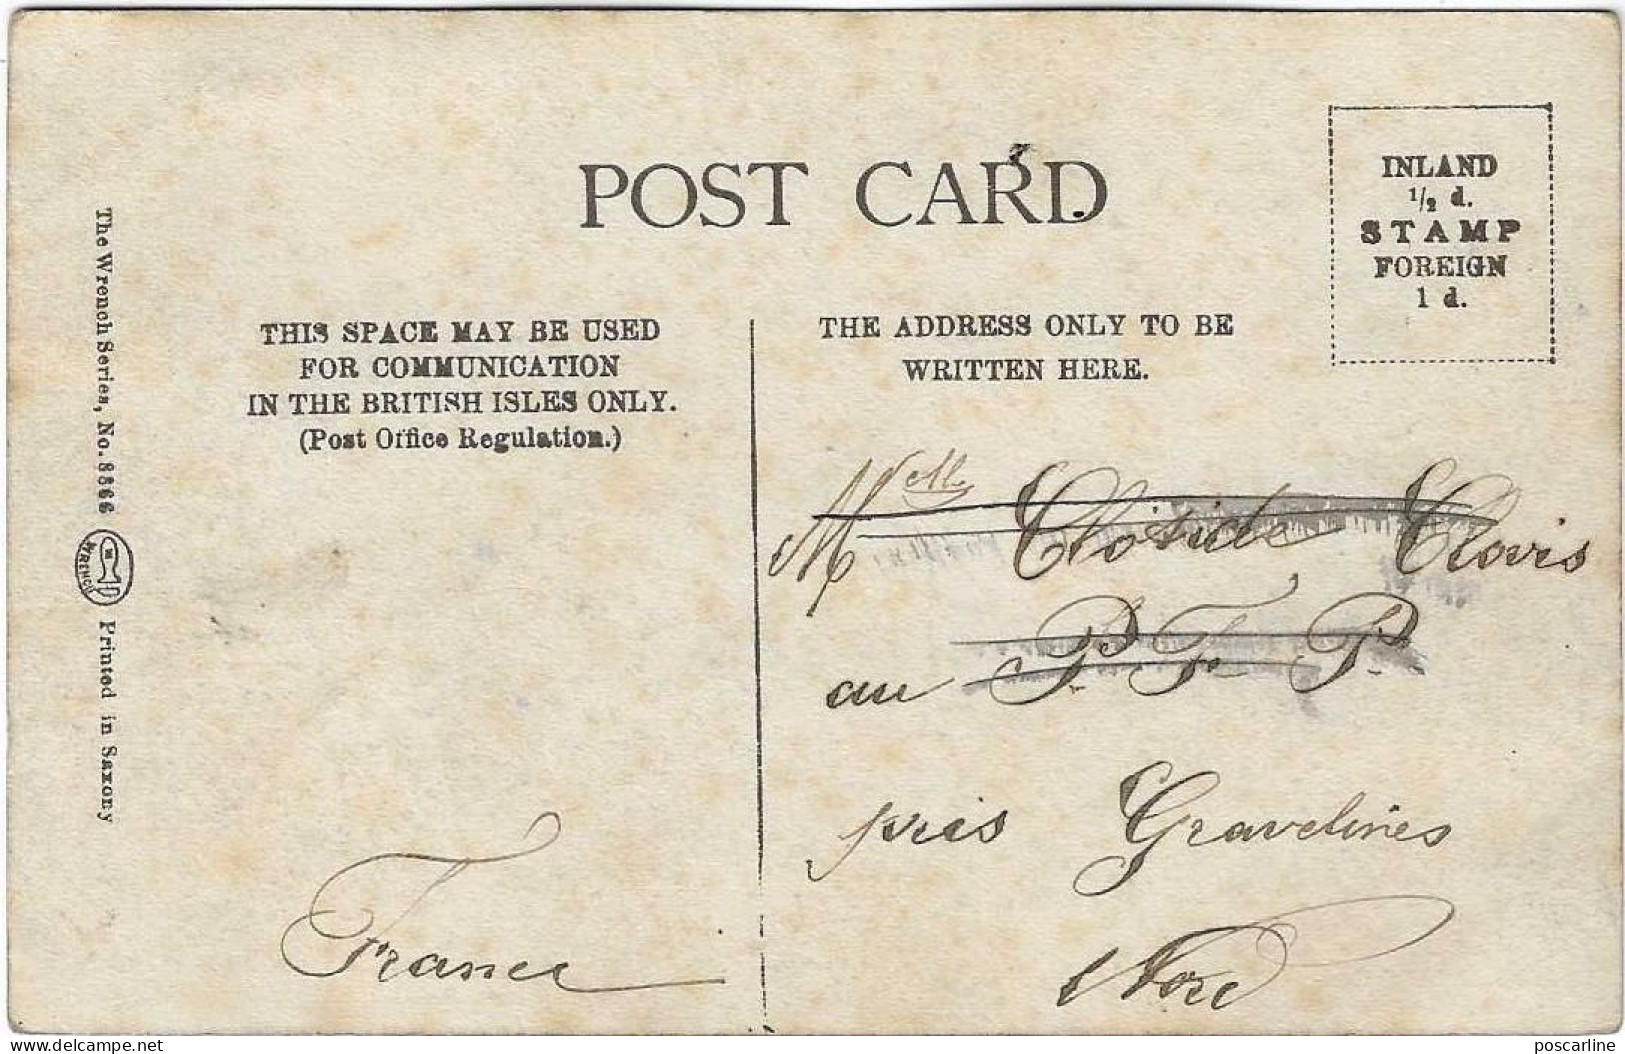 POST CARD
INLAND
1/2 d.
STAMP
FOREIGN
1 d.
THIS SPACE MAY BE USED
FOR COMMUNICATION
IN THE BRITISH ISLES ONLY.
(Post Office Regulation.)
THE ADDRESS ONLY TO BE
WRITTEN HERE.
The Wrench Series, No. 8866
WRENCH
Printed in Saxony
Mell Clotilde Clovis
au P. F. P.
près Gravelines
Nord
France
delcampe.net
poscarline